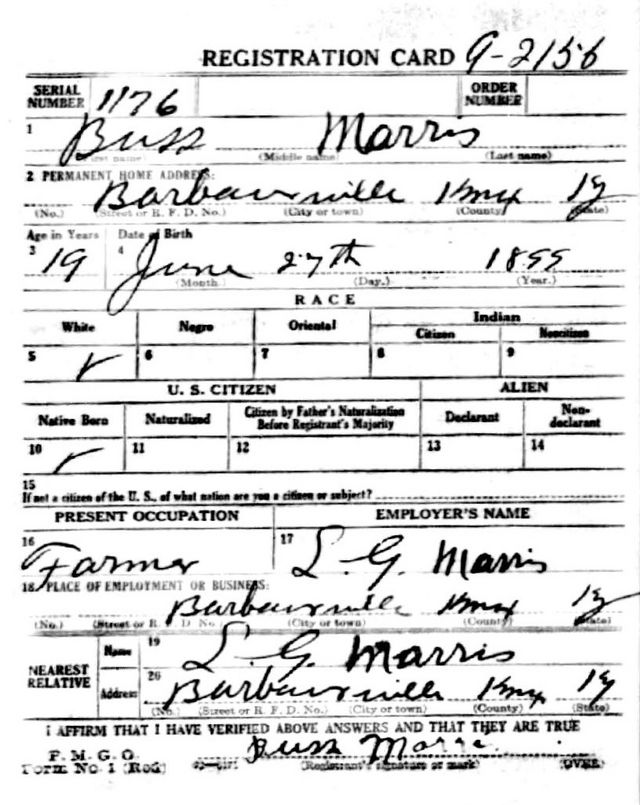 REGISTRATION CARD 9-2156
SERIAL NUMBER 1176 ORDER NUMBER
1 Buss Marris
(First name) (Middle name) (Last name)
2 PERMANENT HOME ADDRESS:
Barbourville Knox Ky
(No.) (Street or R. F. D. No.) (City or town) (County) (State)
Age in Years Date of Birth
3 19 4 June 27th 1899
(Month.) (Day.) (Year.)
RACE
White Negro Oriental Indian
Citizen Noncitizen
5 ✓ 6 7 8 9
U. S. CITIZEN ALIEN
Native Born Naturalized Citizen by Father's Naturalization Before Registrant's Majority Declarant Non-declarant
10 ✓ 11 12 13 14
15
If not a citizen of the U. S., of what nation are you a citizen or subject?
PRESENT OCCUPATION EMPLOYER'S NAME
16 Farmer 17 L. G. Marris
18 PLACE OF EMPLOYMENT OR BUSINESS:
Barbourville Knox Ky
(No.) (Street or R. F. D. No.) (City or town) (County) (State)
NEAREST RELATIVE Name 19 L. G. Marris
Address 20 Barbourville Knox Ky
(No.) (Street or R. F. D. No.) (City or town) (County) (State)
I AFFIRM THAT I HAVE VERIFIED ABOVE ANSWERS AND THAT THEY ARE TRUE
P. M. G. O.
Form No. 1 (Red) Buss
(Registrant's signature or mark) (OVER)